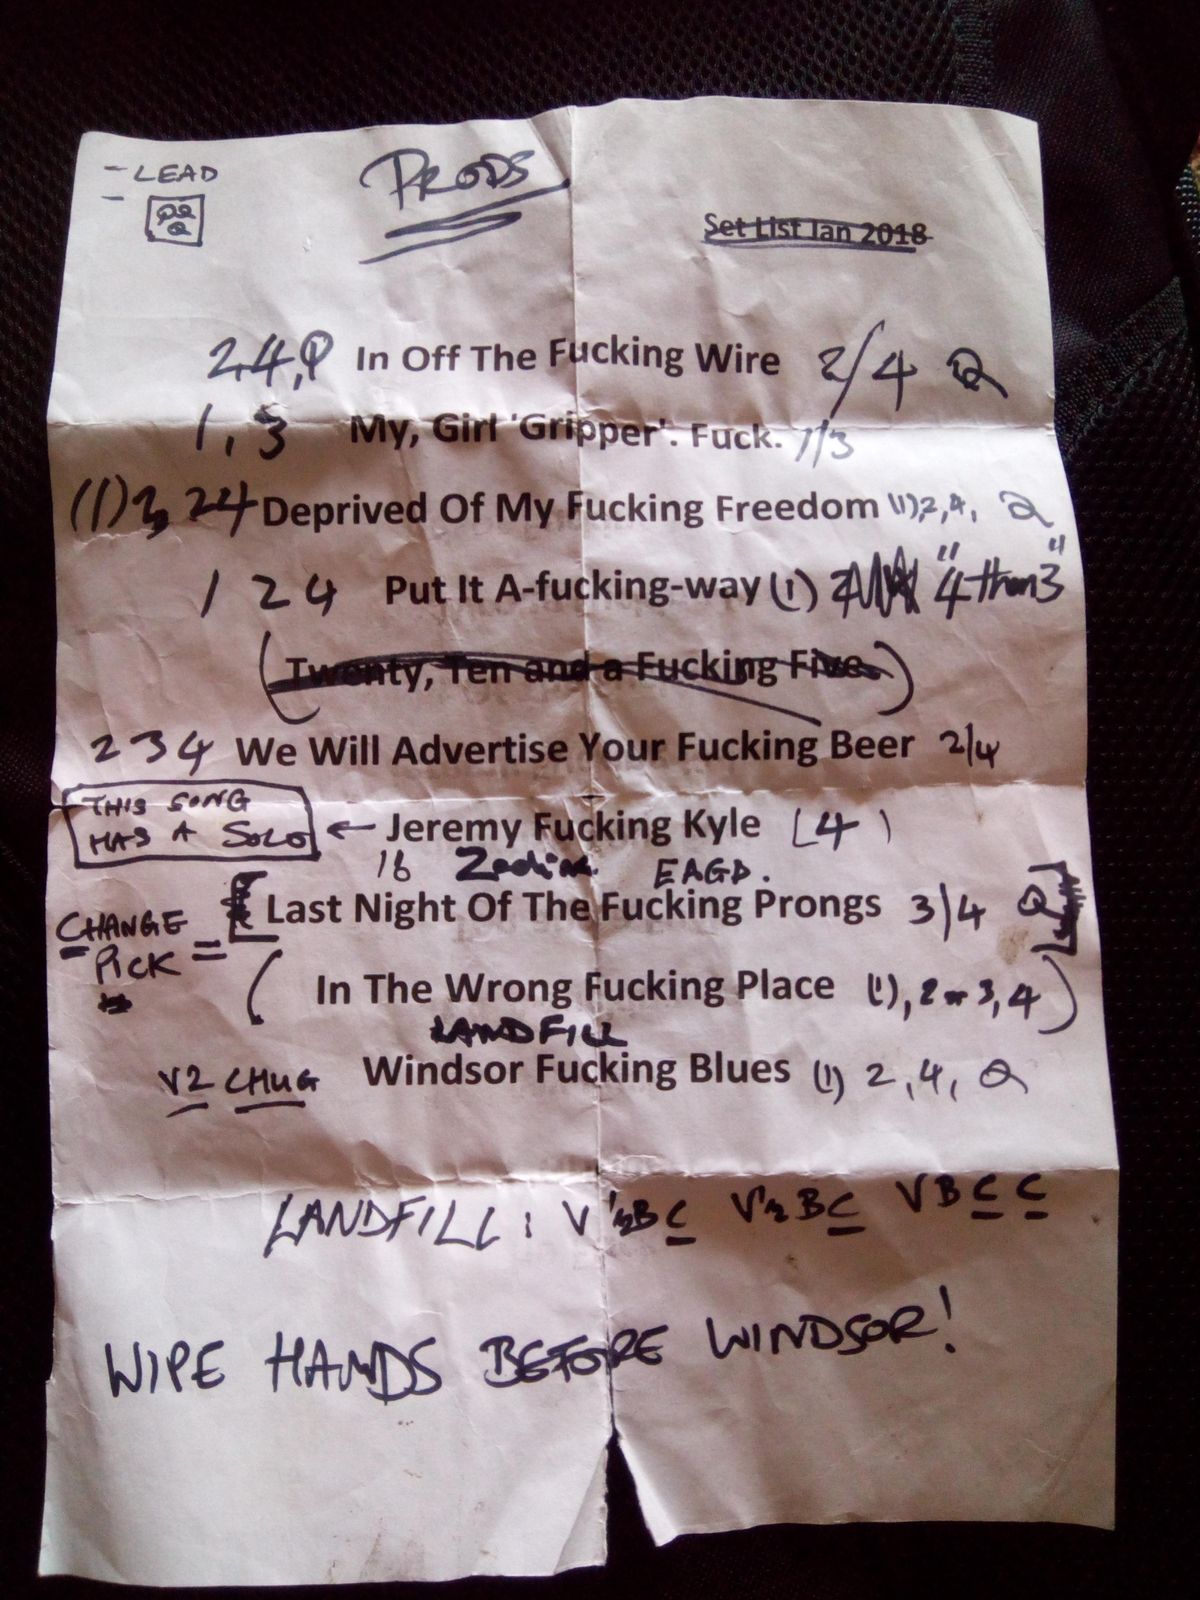 - LEAD
PRODS
-
Set List Jan 2018
2 4, Q In Off The Fucking Wire 2/4 Q
1, 3 My, Girl 'Gripper'. Fuck. 1/3
(1) 2 4 Deprived Of My Fucking Freedom (1), 2, 4, Q
1 2 4 Put It A-fucking-way (1) "4 then 3"
(Twenty, Ten and a Fucking Five)
2 3 4 We Will Advertise Your Fucking Beer 2/4
THIS SONG
HAS A SOLO ← Jeremy Fucking Kyle (4)
16 Zodiac EAGD.
CHANGE [Last Night Of The Fucking Prongs 3/4 Q]
PICK =
(In The Wrong Fucking Place (1), 2 or 3, 4)
LANDFILL
V2 CHUG Windsor Fucking Blues (1) 2, 4, Q
LANDFILL: V ½B C V ½ B C V B C C
WIPE HANDS BEFORE WINDSOR!